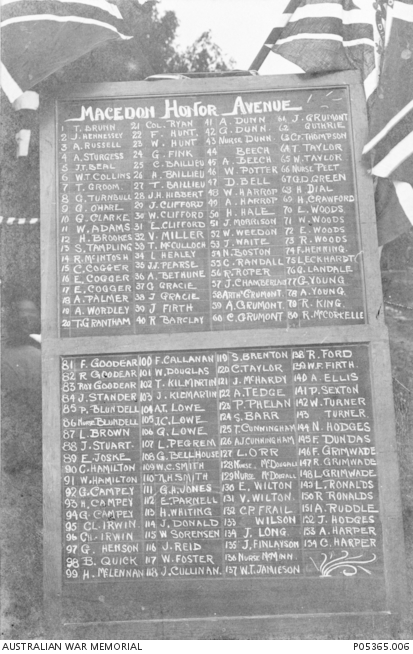 MACEDON HONOR AVENUE
1 T. BRUNN
2 J. HENNESSEY
3 A. RUSSELL
4 A. STURGESS
5 J.T. BEAL
6 W.T. COLLINS
7 T. GROOM.
8 G. TURNBULL
9 G. OHNEL
10 G. CLARKE
11 W. ADAMS
12 H. BROOKES
13 S. TAMPLING
14 R. McINTOSH
15 C. COGGER
16 E. COGGER
17 E. COGGER
18 A. PALMER
19 A. WORDLEY
20 T. GRANTHAM
21 COL. RYAN
22 F. HUNT.
23 W. HUNT
24 G. FINK
25 C. BAILLIEU
26 A. BAILLIEU
27 T. BAILLIEU
28 J.H. HIBBERT
29 J. CLIFFORD
30 W. CLIFFORD
31 L. CLIFFORD
32 V. MILLER
33 T. McCULLOCH
34 L. HEALEY
35 J. PEARSE
36 A. BETHUNE
37 C GRACIE
38 J GRACIE
39 J FIRTH
40 R BARCLAY
41 A. DUNN
42 G. DUNN.
43 NURSE DUNN
44 BEECH
45 A. BEECH
46 W. POTTER
47 D. BELL
48 W. HARROP
49 A. HARROP
50 H. HALE
51 J. MORRISON
52 W. WEEDON
53 J. WAITE
54 N. BOSTON
55 C. RANDALL
56 R. ROPER
57 J. CHAMBERLAIN
58 ARTHR GRUMONT
59 A. GRUMONT
60 C. GRUMONT
61 J. GRUMONT
62 GUTHRIE
63 CR THOMPSON
64 T. TAYLOR
65 W. TAYLOR
66 NURSE PEET
67 G.D. GREEN
68 H DIAL
69 H. CRAWFORD
70 L. WOODS
71 N. WOODS
72 E. WOODS
73 R. WOODS
74 F. HEMMING.
75 LECKHARDT
76 G. LANDALE
77 G YOUNG
78 A. YOUNG
79 R. KING.
80 R. McCORKELLE
81 F. GOODEAR
82 R GOODEAR
83 ROY GOODEAR
84 J. STANDER
85 P. BLUNDELL
86 NURSE BLUNDELL
87 L. BROWN
88 J. STUART
89 E. JOSKE
90 C. HAMILTON
91 W. HAMILTON
92 G. CAMPEY
93 H. CAMPEY
94 G. CAMPEY
95 CL. IRWIN
96 CH. IRWIN
97 G. HENSON
98 B. QUICK
99 H. McLENNAN
100 F. CALLANAN
101 W. DOUGLAS
102 T. KILMARTIN
103 J. KILMARTIN
104 A.T. LOWE
105 J.C. LOWE
106 G. LOWE
107 L. PEGREM
108 G. BELLHOUSE
109 W.C. SMITH
110 A.H. SMITH
111 G.H. JONES
112 E. PARNELL
113 H. WHITING
114 J. DONALD
115 W SORENSEN
116 J. REID
117 W. FOSTER
118 J. CULLINAN.
119 S. BRENTON
120 C. TAYLOR
121 J. McHARDY
122 A. TEDGE
123 P. PHELAN
124 S. BARR
125 T. CUNNINGHAM
126 A.J. CUNNINGHAM
127 L. ORR
128 NURSE. McDOUGALL
129 NURSE McDOUGALL
130 E. WILTON
131 V. WILTON.
132 C.P. FRAIL
133 WILSON
134 J. LONG.
135 J. FINLAYSON
136 NURSE McMINN
137 W.T. JAMIESON
138 R. FORD
139 W.F. FIRTH.
140 A. ELLIS
141 P. SEXTON
142 W. TURNER
143 TURNER.
144 N. HODGES
145 F. DUNDAS
146 F. GRIMWADE
147 R. GRIMWADE
148 L. GRIMWADE
149 L. RONALDS
150 R RONALDS
151 A. RUDDLE
152 J. HODGES
153 A. HARPER
154 C. HARPER
AUSTRALIAN WAR MEMORIAL
P05365.006